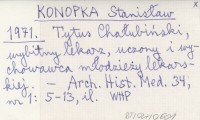 KONOPKA Stanisław
x
1971. Tytus Chałubiński,
wybitny lekarz, uczony i wy-
chowawca młodzieży lekars-
kiej. – Arch. Hist. Med. 34,
nr 1: 5-13, il. WHP